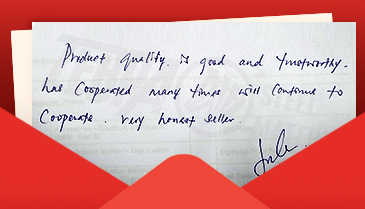 Product quality. is good and trustworthy.
has cooperated many times will continue to
Cooperate. very honest seller.